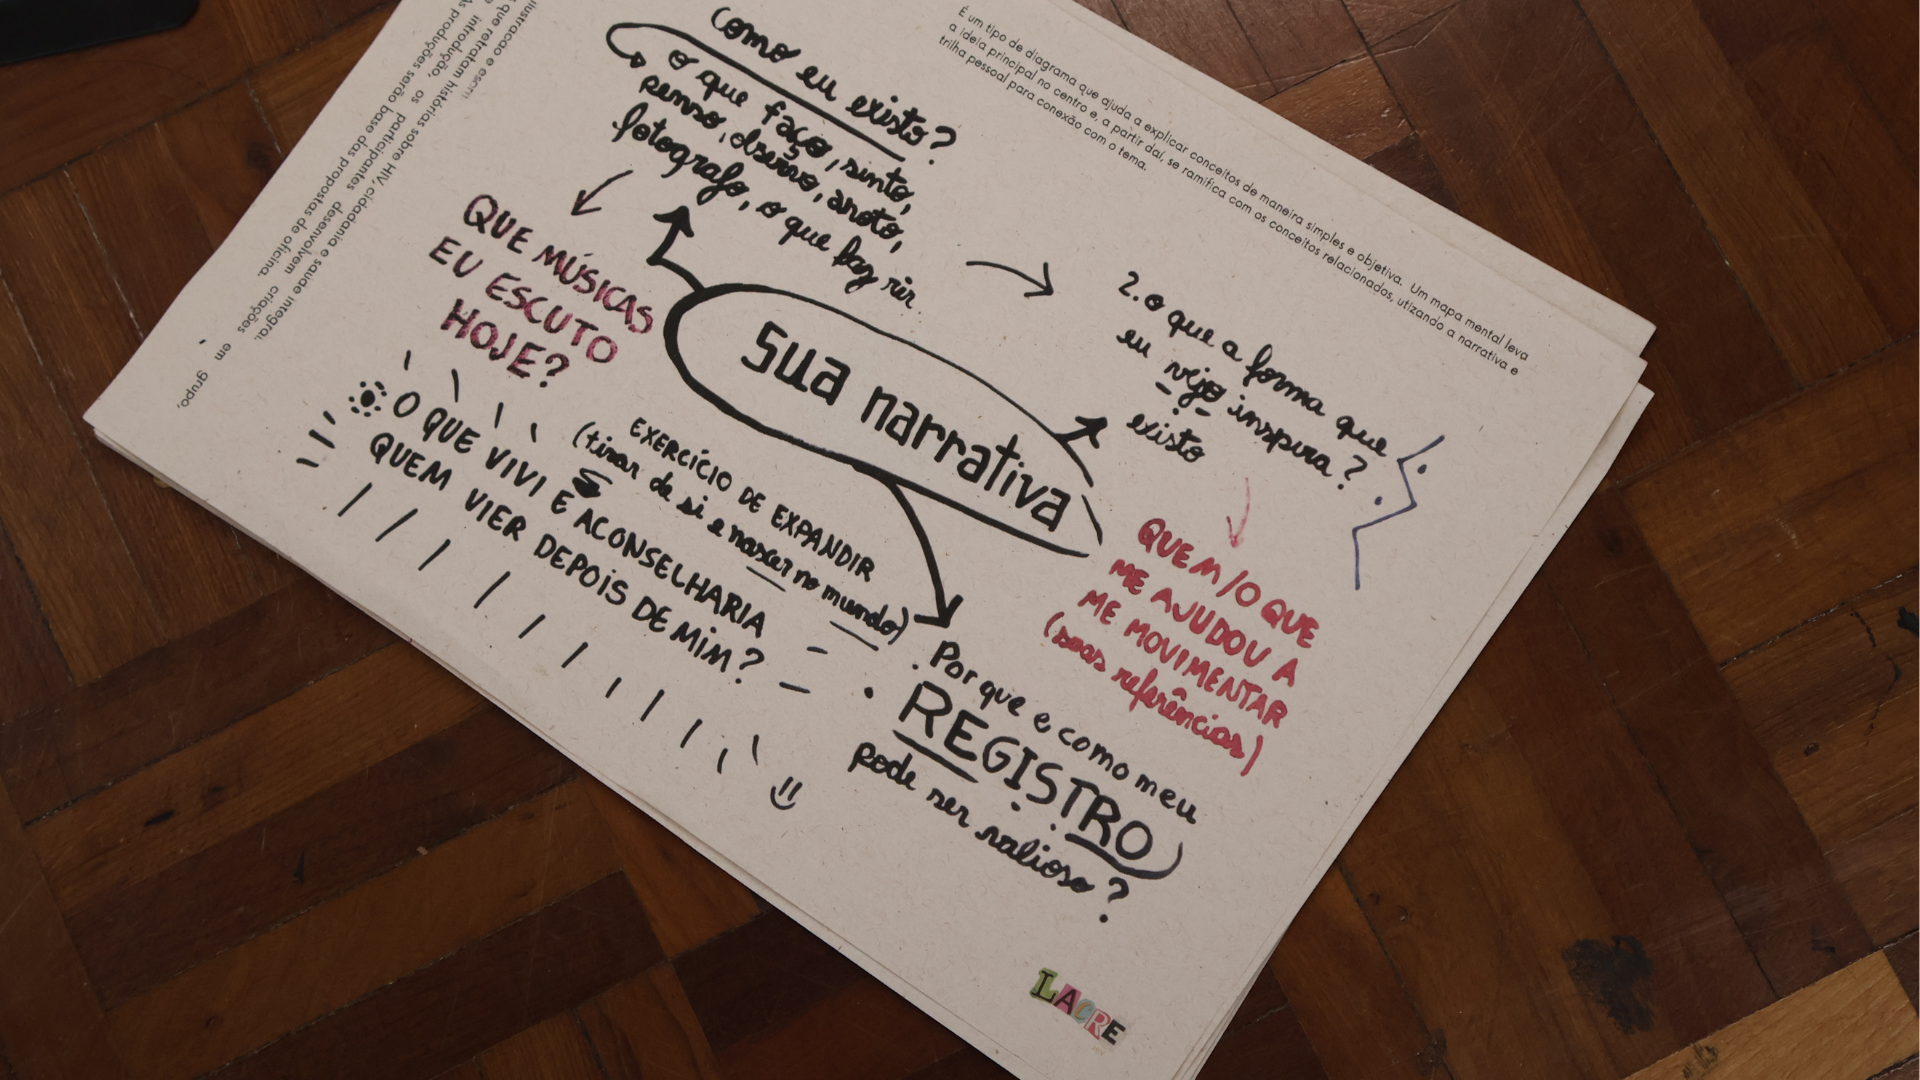 É um tipo de diagrama que ajuda a explicar conceitos de maneira simples e objetiva. Um mapa mental leva
a ideia principal no centro e, a partir daí, se ramifica com os conceitos relacionados, utizando a narrativa e
trilha pessoal para conexão com o tema.
como eu existo?
o que faço, sinto,
penso, observo, anoto,
fotografo, o que faz rir
QUE MÚSICAS
EU ESCUTO
HOJE?
sua narrativa
2. o que a forma que
eu vejo inspira?
existo
QUEM/O QUE
ME AJUDOU A
ME MOVIMENTAR
(suas referências)
EXERCÍCIO DE EXPANDIR
(tirar de si e nascer no mundo)
O QUE VIVI E ACONSELHARIA
QUEM VIER DEPOIS DE MIM?
Por que e como meu
REGISTRO
pode ser valioso?
LACRE
ilustração e escrit
que retratam histórias sobre HIV, cidadania e saúde integral.
introdução, os participantes desenvolvem criações em grupo,
As produções serão base das propostas de oficina.